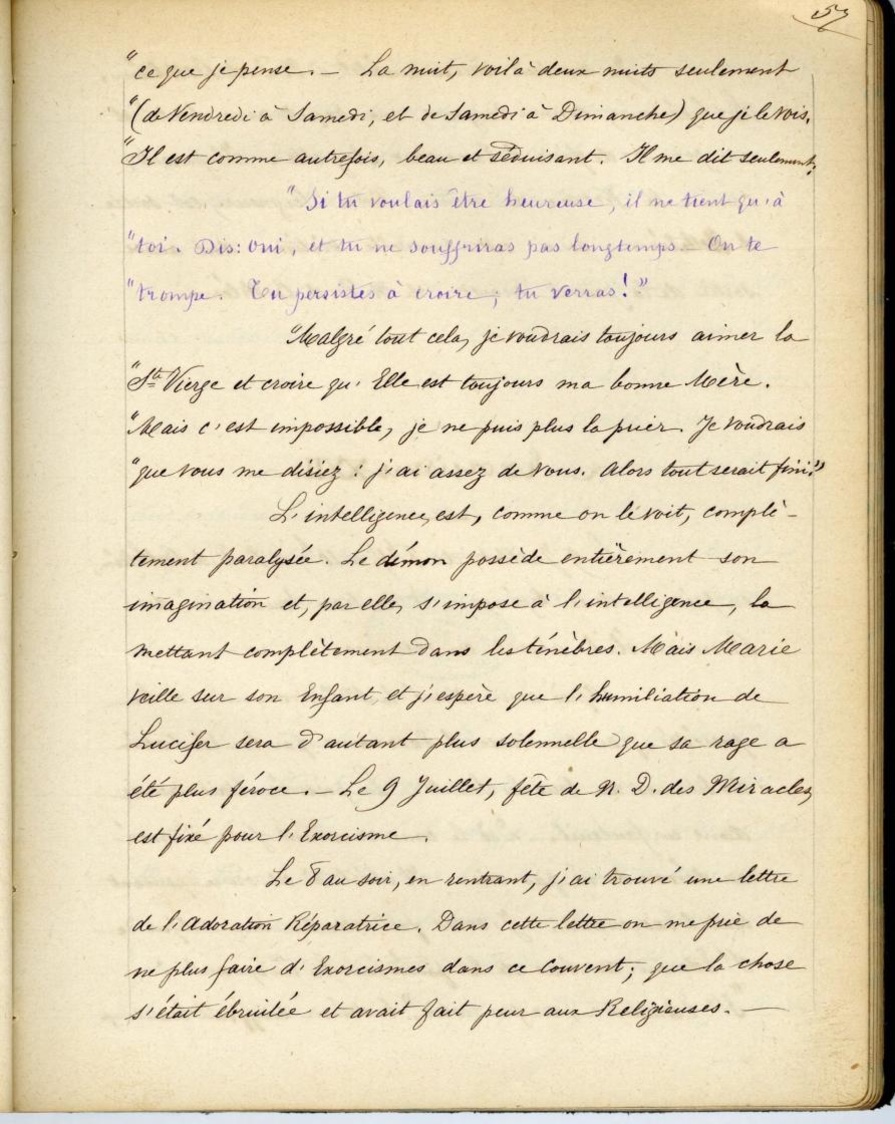 57
"ce que je pense. — La nuit, voilà deux nuits seulement
"(de Vendredi à Samedi, et de Samedi à Dimanche) que je le vois.
"Il est comme autrefois, beau et séduisant. Il me dit seulement:
"Si tu voulais être heureuse, il ne tient qu'à
"toi. Dis: oui, et tu ne souffriras pas longtemps. On te
"trompe. Tu persistes à croire; tu verras!"
"Malgré tout cela, je voudrais toujours aimer la
"Ste Vierge et croire qu'Elle est toujours ma bonne Mère.
"Mais c'est impossible, je ne puis plus la prier. Je voudrais
"que vous me disiez: j'ai assez de vous. Alors tout serait fini."
L'intelligence, est, comme on le voit, complè-
tement paralysée. Le démon possède entièrement son
imagination et, par elle, s'impose à l'intelligence, la
mettant complètement dans les ténèbres. Mais Marie
veille sur son Enfant et j'espère que l'humiliation de
Lucifer sera d'autant plus solennelle que sa rage a
été plus féroce. — Le 9 Juillet, fête de N. D. des Miracles,
est fixé pour l'Exorcisme.
Le 8 au soir, en rentrant, j'ai trouvé une lettre
de l'Adoration Réparatrice. Dans cette lettre on me prie de
ne plus faire d'Exorcismes dans ce Couvent; que la chose
s'était ébruitée et avait fait peur aux Religieuses. —